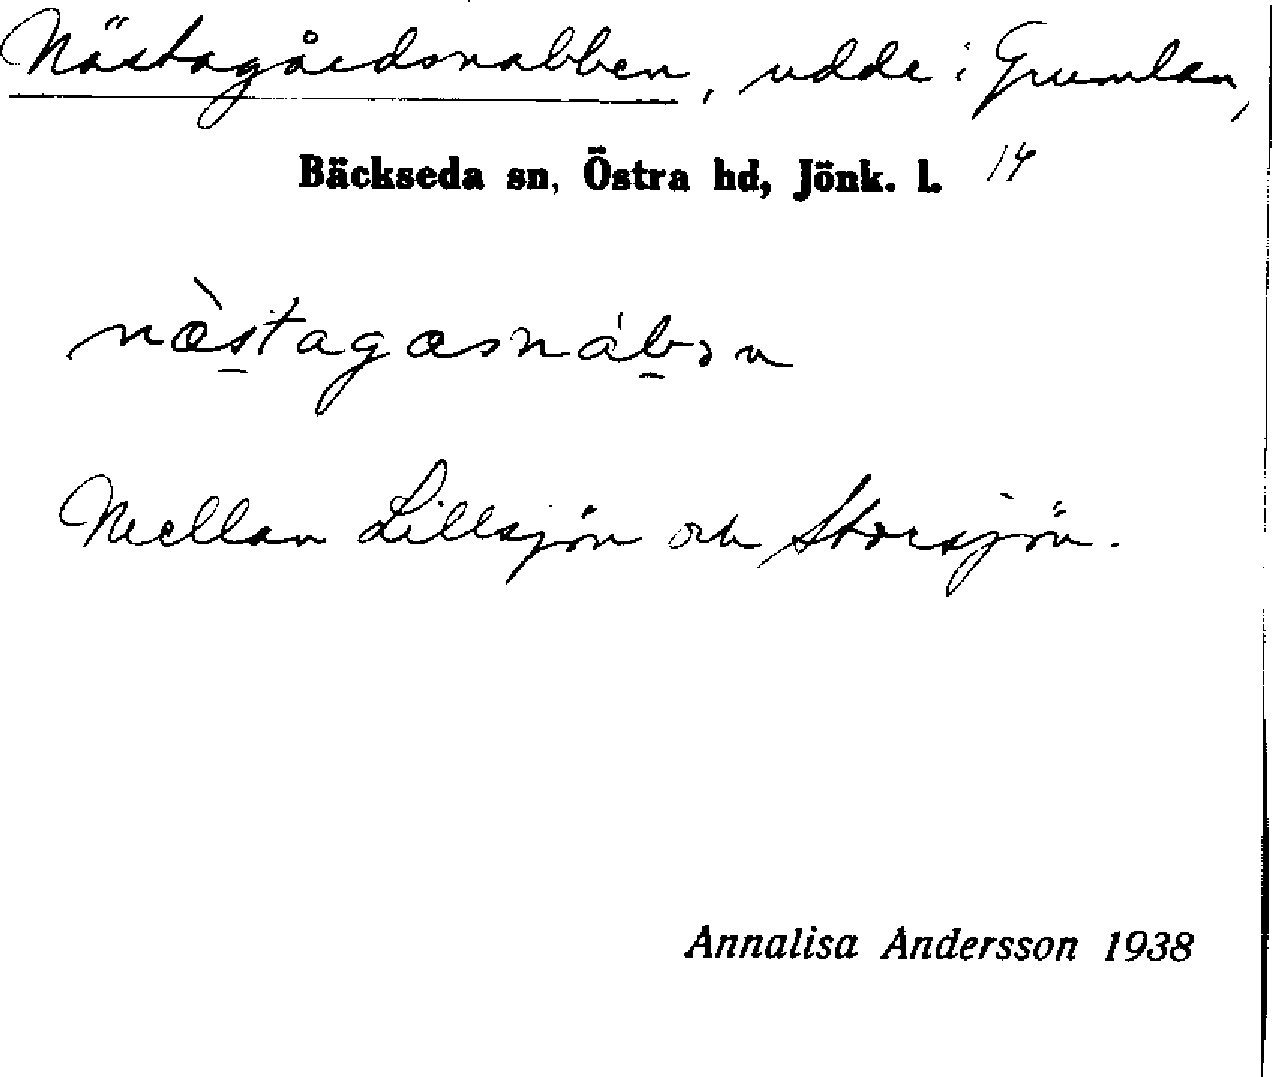 Nästagårdsnabben, udde i Grumlan,
Bäckseda sn, Östra hd, Jönk. l. 14
næ̀stagasnábən
Mellan Lillsjön och Storsjön.
Annalisa Andersson 1938